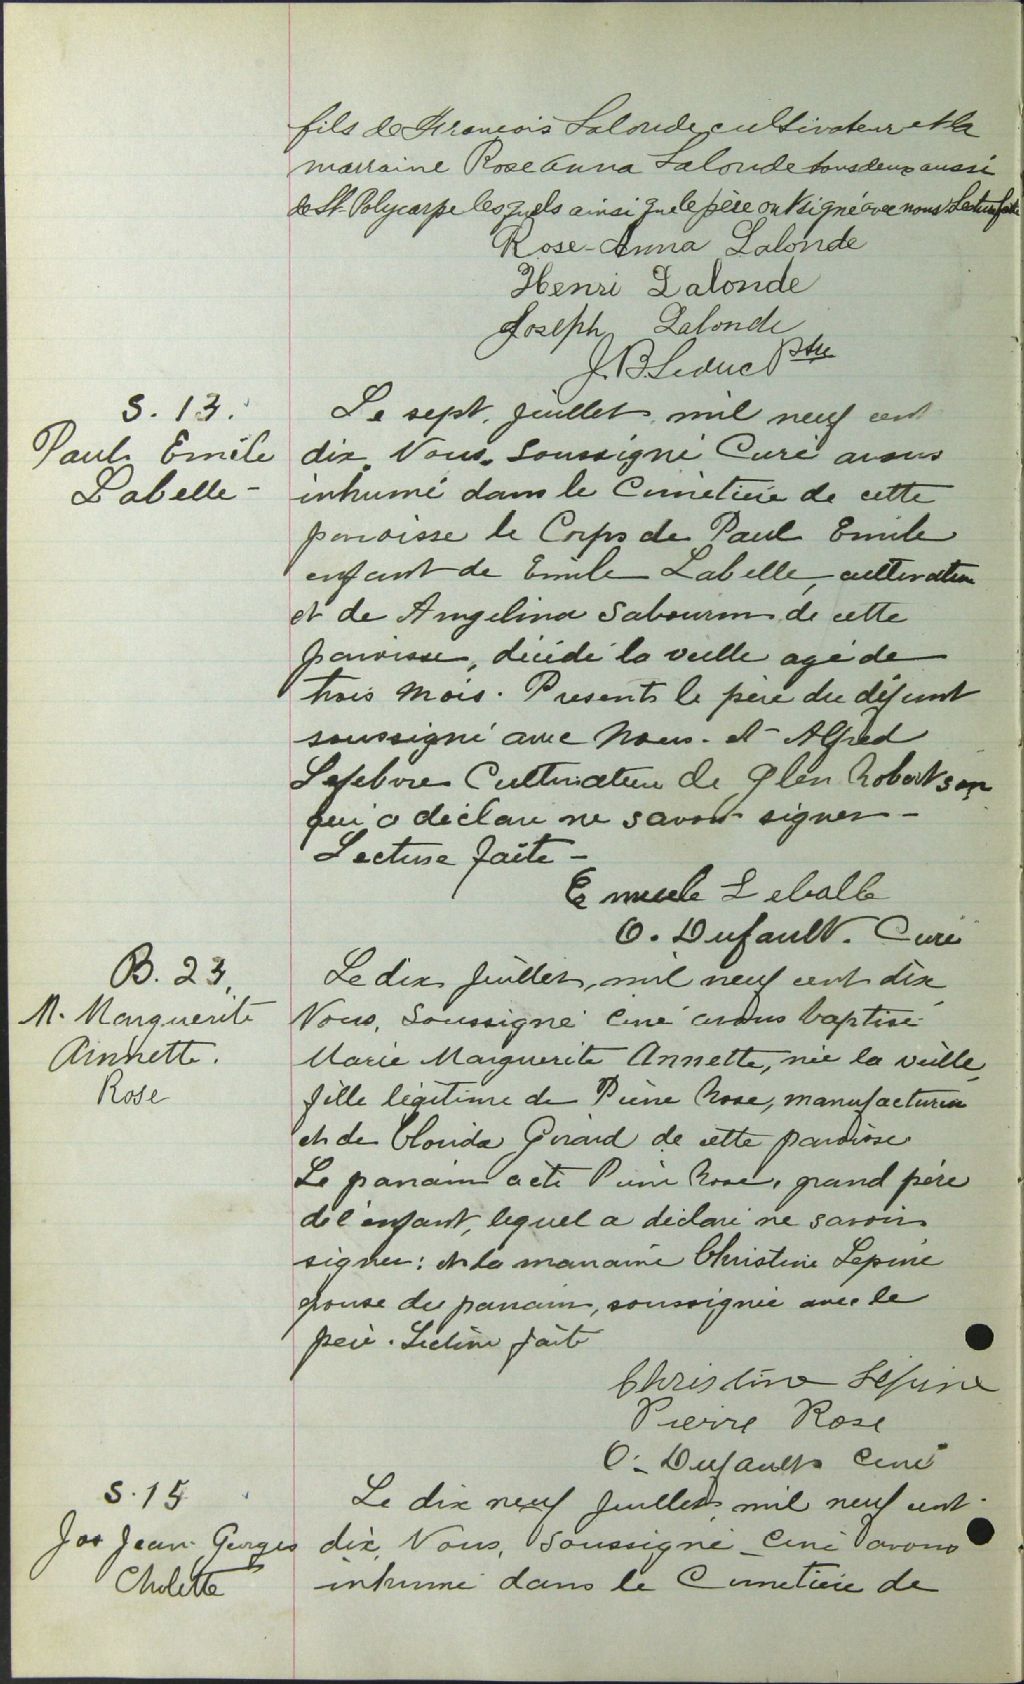 fils de François Lalonde cultivateur et la
marraine Rose Anna Lalonde tous deux aussi
de St Polycarpe lesquels ainsi que le père ont signé avec nous Lecture faite
Rose-Anna Lalonde
Henri Lalonde
Joseph Lalonde
J. B. Leduc Ptre
S. 13.
Paul Emile
Labelle -
Le sept juillet mil neuf cent
dix. Nous, soussigné Curé avons
inhumé dans le Cimetière de cette
paroisse le Corps de Paul Emile
enfant de Emile Labelle, cultivateur
et de Angelina Sabourin de cette
paroisse, décédé la veille agé de
trois mois. Presents le père du défunt
soussigné avec Nous. et Alfred
Lefebvre Cultivateur de Glen Robertson
qui a déclaré ne savoir signer -
Lecture faite -
Emuele Leballe
O. Dufault. Curé
B. 23,
M. Marguerite
Annette.
Rose
Le dix Juillet, mil neuf cent dix
Nous, Soussigné Curé avons baptisé
Marie Marguerite Annette, née la veille,
fille légitime de Pierre Rose, manufacturier
et de Clorida Girard de cette paroisse
Le parrain a été Pierre Rose, grand père
de l'enfant, lequel a déclaré ne savoir
signer: et la marraine Christine Lepine
épouse du parrain, soussignée avec le
père. Lecture faite
Christine Lépine
Pierre Rose
O. Dufault Curé
S. 15
Jos Jean Georges
Cholette
Le dix neuf Juillet mil neuf cent
dix, Nous, Soussigné Curé avons
inhumé dans le Cimetière de